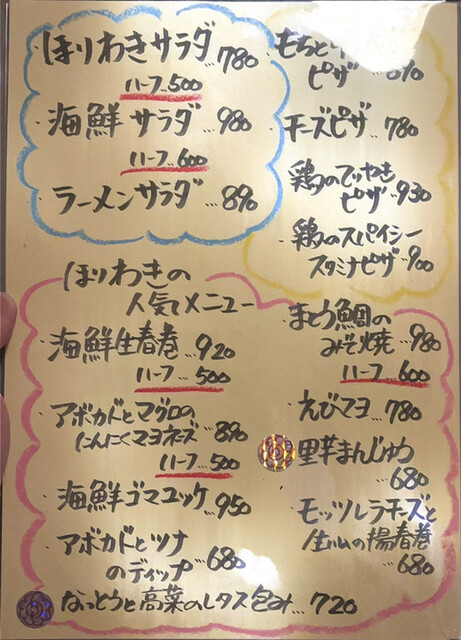 ほりわきサラダ…780
ハーフ…500
海鮮サラダ…980
ハーフ…600
ラーメンサラダ…890
もちと
ピザ
チーズピザ…780
鶏のてりやき
ピザ…930
鶏のスパイシー
スタミナピザ…900
ほりわきの
人気メニュー
海鮮生春巻…920
ハーフ…500
アボカドとマグロの
にんにくマヨネーズ…890
ハーフ…500
海鮮ゴマユッケ…950
アボカドとツナ
のディップ…680
なっとうと高菜のレタス包み…720
まとう鯛の
みそ焼…980
ハーフ…600
えびマヨ…780
里芋まんじゅう
…680
モッツレラチーズと
の揚春巻
…680